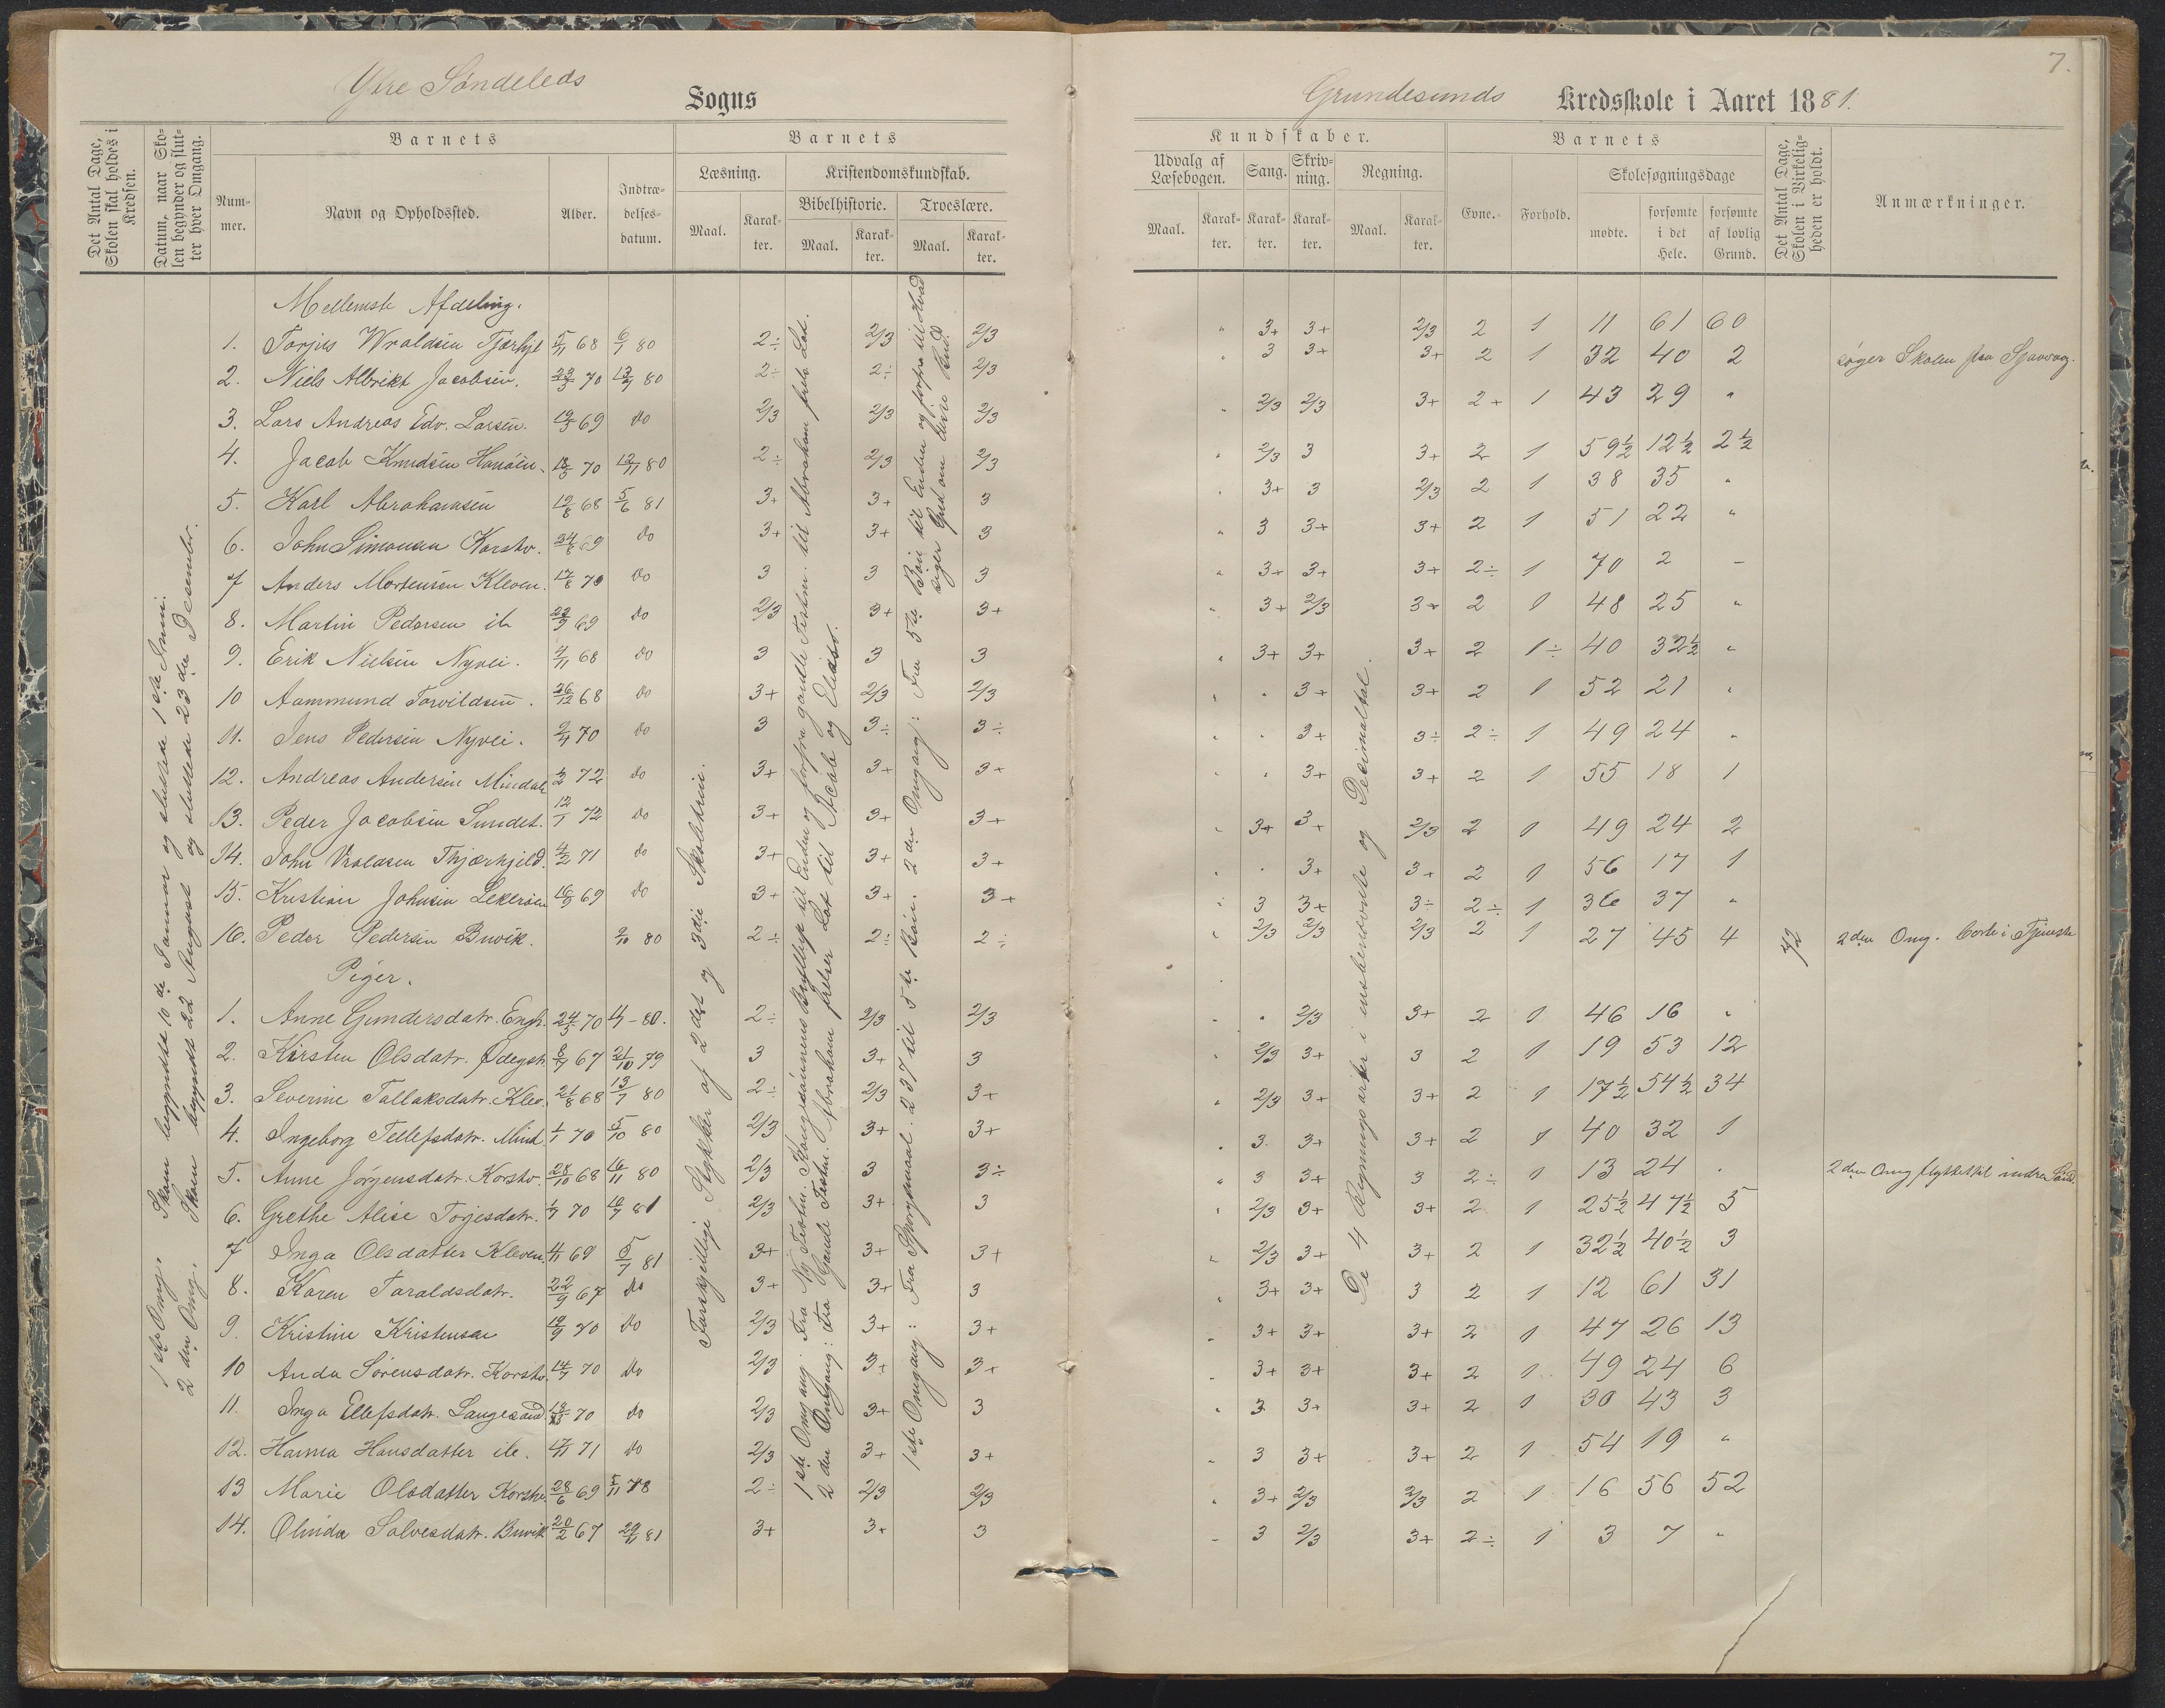 Ytre Søndeleds Sogns
Grundesunds Kredsskole i Aaret 1881.
7.
Det Antal Dage, Skolen skal holdes i Kredsen.
Datum, naar Skolen begynder og slutter hver Omgang.
Barnets
Nummer.
Navn og Opholdssted.
Alder.
Indtrædelsesdatum.
Barnets
Læsning.
Maal.
Karakter.
Kristendomskundskab.
Bibelhistorie.
Maal.
Karakter.
Troeslære.
Maal.
Karakter.
Kundskaber.
Udvalg af Læsebogen.
Maal.
Karakter.
Sang.
Karakter.
Skrivning.
Karakter.
Regning.
Maal.
Karakter.
Barnets
Evne.
Forhold.
Skolesøgningsdage
mødte.
forsømte i det Hele.
forsømte af lovlig Grund.
Det Antal Dage, Skolen i Virkeligheden er holdt.
Anmærkninger.
1ste Omg. Skolen begyndte 10de Januar og sluttede 1ste Juni.
2den Omg. Skolen begyndt 22 August og sluttede 23de Desember.
Forskjellige Stykker af 2det og 3die Skoletrin.
1ste Omgang: Fra Ny Testm. til Enden og forfra gamle Testm. til Abraham frels Lot.
2den Omgang: Fra Gamle Testm. Abraham frelser Lot til Acab og Elias.
1ste Omgang: Fra Spørgsmaal 237 til 5te Bøn. 2den Omgang: Fra 5te Bøn til Enden og forfra til Hvad siger Gud om disse Bud.
De 4 Regningsarter i ensbenævnte og Decimaltal.
Mellemste Afdeling.
1. Torjus Wroldsen Tjærkjl 5/11 68 6/1 80 2÷ 2/3 2/3 " 3+ 3+ 2/3 2 1 11 61 60
2. Niels Albrikt Jacobsen. 23/3 70 13/9 80 2÷ 2÷ 2/3 " 3 3+ 3+ 2 1 32 40 2 søger Skolen fra
3. Lars Andreas Edv. Larsen. 19/3 69 do 2/3 2/3 2/3 " 2/3 2/3 3+ 2+ 1 43 29 "
4. Jacob Knudsen 18/3 70 12/11 80 2÷ 2/3 2/3 " 2/3 3 3+ 2 1 59½ 12½ 2½
5. Karl Abrahamsen 12/8 68 5/6 81 3+ 3+ 3 " 3+ 3 2/3 2 1 38 35 "
6. John Simonsen Korstv. 24/8 69 do 3+ 3+ 3 " 3 3+ 3+ 2 1 51 22 "
7 Anders Mortensen Kleven. 17/8 70 do 3 3 3 " 3+ 3+ 3+ 2÷ 1 70 2 –
8. Martin Pedersen ib 22/9 69 do 2/3 3+ 3+ " 3+ 2/3 3+ 2 1 48 25 "
9. Erik Nielsen Nyvei. 4/11 68 do 3 3 3 " 3+ 3+ 3+ 2 1÷ 40 32½ "
10 Aammund Torvildsen. 26/12 68 do 3+ 2/3 2/3 " " 3+ 3+ 2 1 52 21 "
11. Jens Pedersen Nyvei. 2/4 70 do 3 3÷ 3÷ " " 3+ 3÷ 2÷ 1 49 24 "
12. Andreas Andersen Mindal 4/2 72 do 3+ 3+ 3+ " " 3+ 3+ 2 1 55 18 1
13. Peder Jacobsen Sundet. 12/1 72 do 3+ 3+ 3+ " 3+ 3+ 2/3 2 1 49 24 2
14. John Vraldsen Thjærkjeld. 4/2 71 do 3+ 3+ 3+ " " 3+ 3+ 2 1 56 17 1
15. Kristian Johnsen 16/9 69 do 3+ 3+ 3+ " 3 3+ 3÷ 2÷ 1 36 37 "
16. Peder Pedersen Buvik. 2/10 80 2÷ 2÷ 2÷ " 2/3 2/3 2/3 2 1 27 45 4 72 2den Omg. borte i Tjeneste
Piger.
1. Anne Gundersdatr. 24/5 70 4 – 80. 2÷ 2/3 2/3 " " 2/3 3+ 2 1 46 16 "
2. Kirsten Olsdatr. Ødegst. 8/9 67 21/10 79 3 3+ 3 " 2/3 3+ 3 2 1 19 53 12
3. Severine Tallaksdatr. Klev. 21/8 68 13/1 80 2÷ 2/3 3+ " 2/3 3+ 3+ 2 1 17½ 54½ 34
4. Ingeborg Tellefsdatr. Mind 1/1 70 5/10 80 2/3 3+ 3+ " 3 3+ 3+ 2 1 40 32 1
5. Anne Jørgensdatr. Korstv. 28/10 68 16/11 80 2/3 3 3÷ " 3 3+ 3 2÷ 1 13 24 " 2den Omg flyttet til indre Sønd.
6. Grethe Alise Torjesdatr. 1/7 70 18/7 81 2/3 3+ 3 " 2/3 3+ 3+ 2 1 25½ 47½ 5
7 Inga Olsdatter Kleven 4/11 69 5/7 81 3+ 3+ 3+ " 2/3 3+ 3+ 2 1 32½ 40½ 3
8. Karen Taraldsdatr. 22/9 67 do 3+ 3+ 3 " 3+ 3+ 3 2 1 12 61 31
9. Kristine Kristensen 19/9 70 do 2/3 3+ 3+ " 3+ 3+ 3+ 2 1 47 26 13
10 Anda Sørensdatr. Korstv. 14/7 70 do 2/3 3+ 3+ " 3+ 3+ 3+ 2 1 49 24 6
11. Inga Ellefsdatr. Langesand 70 do 2/3 3+ 3 " 3 3+ 3+ 2 1 30 43 3
12. Hanna Hansdatter ib. 17/11 71 do 2/3 3+ 3+ " 3 3+ 3+ 2 1 54 19 "
13 Marie Olsdatter Korstv 28/6 69 5/11 78 2÷ 2/3 2/3 " 3+ 2/3 2/3 2 1 16 56 52
14. Olinda Salvesdatr. Buvik 20/2 67 29/11 81 3+ 3+ 3 " 3 2/3 3+ 2÷ 1 3 7 "